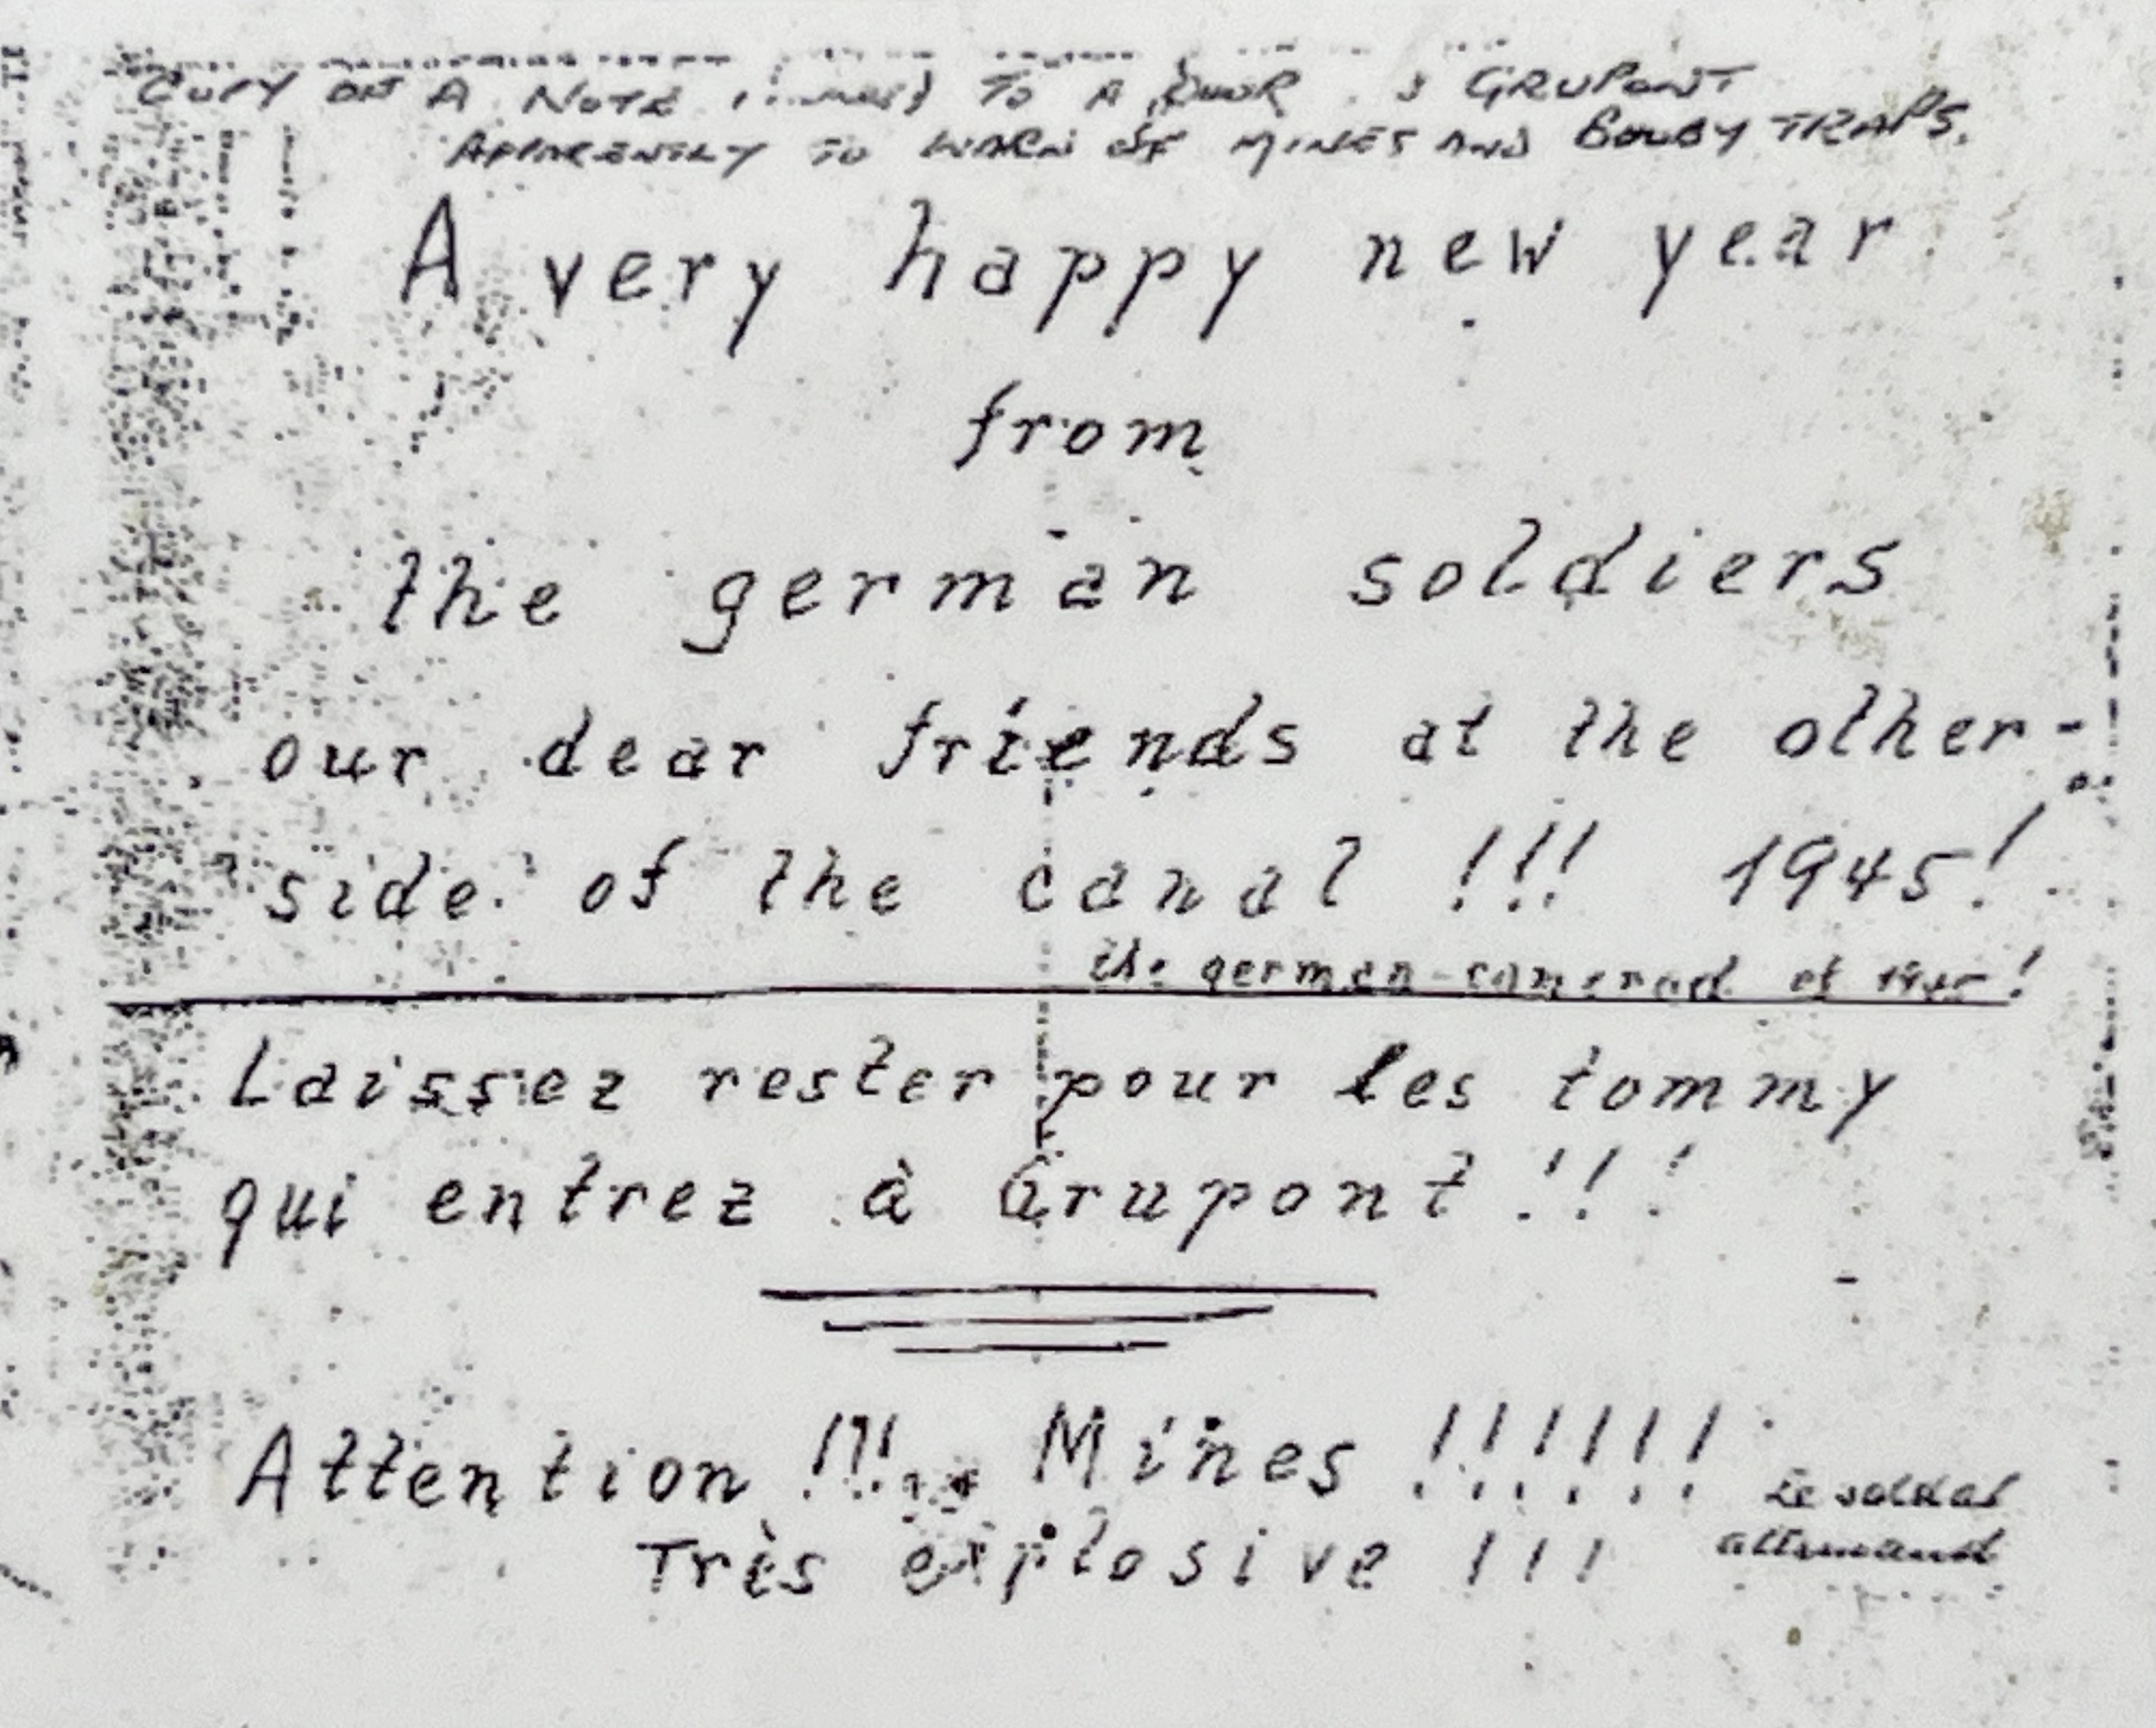 COPY OF A NOTE TO A DOOR GRUPONT
APPARENTLY TO WARN OF MINES AND BOOBY TRAPS.
A very happy new year
from
the german soldiers
our dear friends at the other-
side of the canal !!! 1945!
the german-camerad of !
Laissez rester pour les tommy
qui entrez à Grupont !!!
Attention !!! Mines !!!!!!
Le soldat
allemand
Très explosive !!!